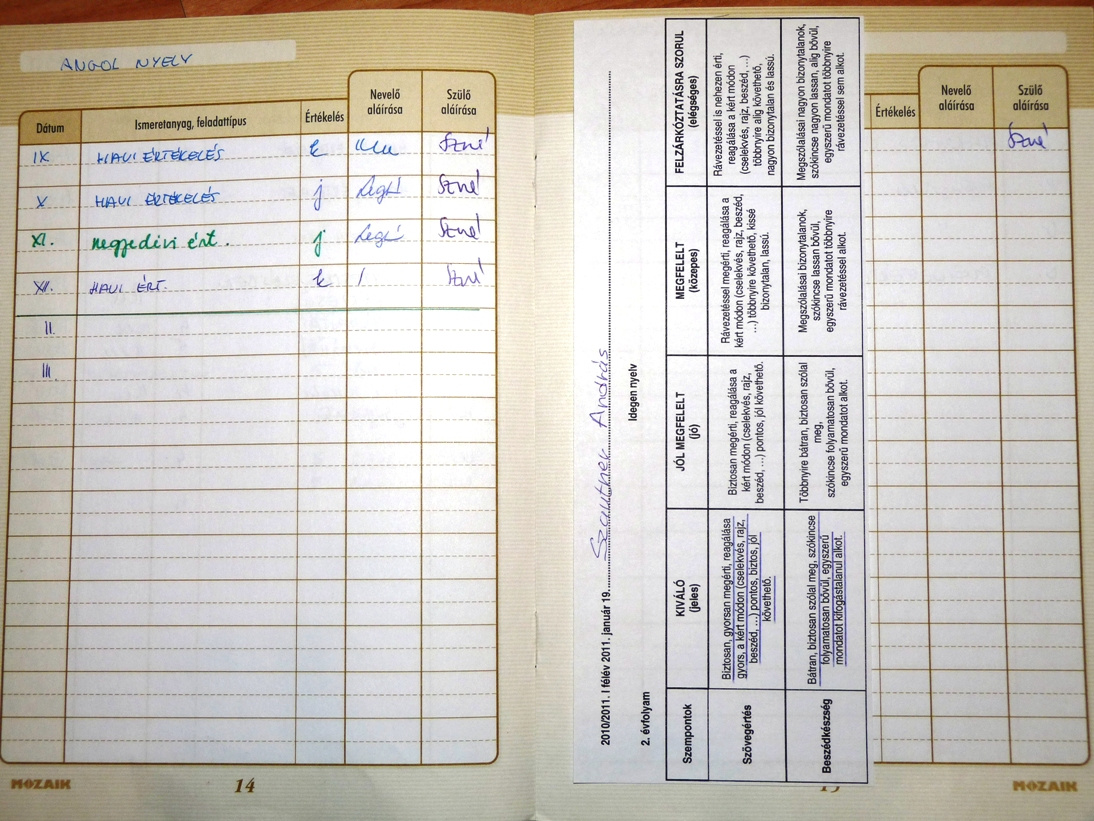 ANGOL NYELV
Dátum Ismeretanyag, feladattípus Értékelés Nevelő aláírása Szülő aláírása
IX HAVI ÉRTÉKELÉS k Szné
X HAVI ÉRTÉKELÉS j Szné
XI. negyedévi ért. j Szné
XII. HAVI ÉRT. k Szné
II.
III
MOZAIK 14
2010/2011. I félév 2011. január 19. Szautner András
2. évfolyam Idegen nyelv
Szempontok
KIVÁLÓ
(jeles)
JÓL MEGFELELT
(jó)
MEGFELELT
(közepes)
FELZÁRKÓZTATÁSRA SZORUL
(elégséges)
Szövegértés
Biztosan, gyorsan megérti, reagálása
gyors, a kért módon (cselekvés, rajz,
beszéd, …) pontos, biztos, jól
követhető.
Biztosan megérti, reagálása a
kért módon (cselekvés, rajz,
beszéd, …) pontos, jól követhető.
Rávezetéssel megérti, reagálása a
kért módon (cselekvés, rajz, beszéd,
…) többnyire követhető, kissé
bizonytalan, lassú.
Rávezetéssel is nehezen érti,
reagálása a kért módon
(cselekvés, rajz, beszéd, …)
többnyire alig követhető,
nagyon bizonytalan és lassú.
Beszédkészség
Bátran, biztosan szólal meg, szókincse
folyamatosan bővül, egyszerű
mondatot kifogástalanul alkot.
Többnyire bátran, biztosan szólal
meg,
szókincse folyamatosan bővül,
egyszerű mondatot alkot.
Megszólalásai bizonytalanok,
szókincse lassan bővül,
egyszerű mondatot többnyire
rávezetéssel alkot.
Megszólalásai nagyon bizonytalanok,
szókincse nagyon lassan, alig bővül,
egyszerű mondatot többnyire
rávezetéssel sem alkot.
Értékelés Nevelő aláírása Szülő aláírása
Szné
MOZAIK